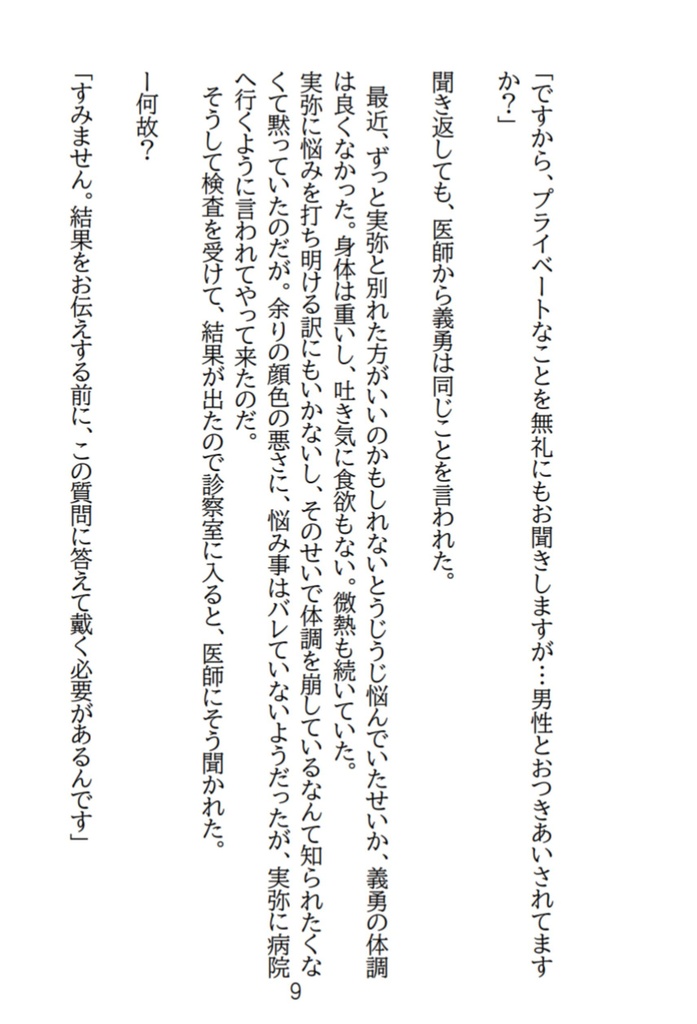 「ですから、プライベートなことを無礼にもお聞きしますが…男性とおつきあいされてます
か？」
聞き返しても、医師から義勇は同じことを言われた。
最近、ずっと実弥と別れた方がいいのかもしれないとうじうじ悩んでいたせいか、義勇の体調
は良くなかった。身体は重いし、吐き気に食欲もない。微熱も続いていた。
実弥に悩みを打ち明ける訳にもいかないし、そのせいで体調を崩しているなんて知られたくな
くて黙っていたのだが。余りの顔色の悪さに、悩み事はバレていないようだったが、実弥に病院
へ行くように言われてやって来たのだ。
そうして検査を受けて、結果が出たので診察室に入ると、医師にそう聞かれた。
ー何故？
「すみません。結果をお伝えする前に、この質問に答えて戴く必要があるんです」
9